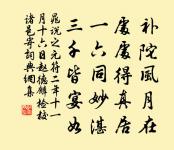 补陀风月在
处处得真居
一六同妙湛
三千皆宴如
晁说之元符二年十一
月十六日赵德麟检校
诸邑寄词典網集